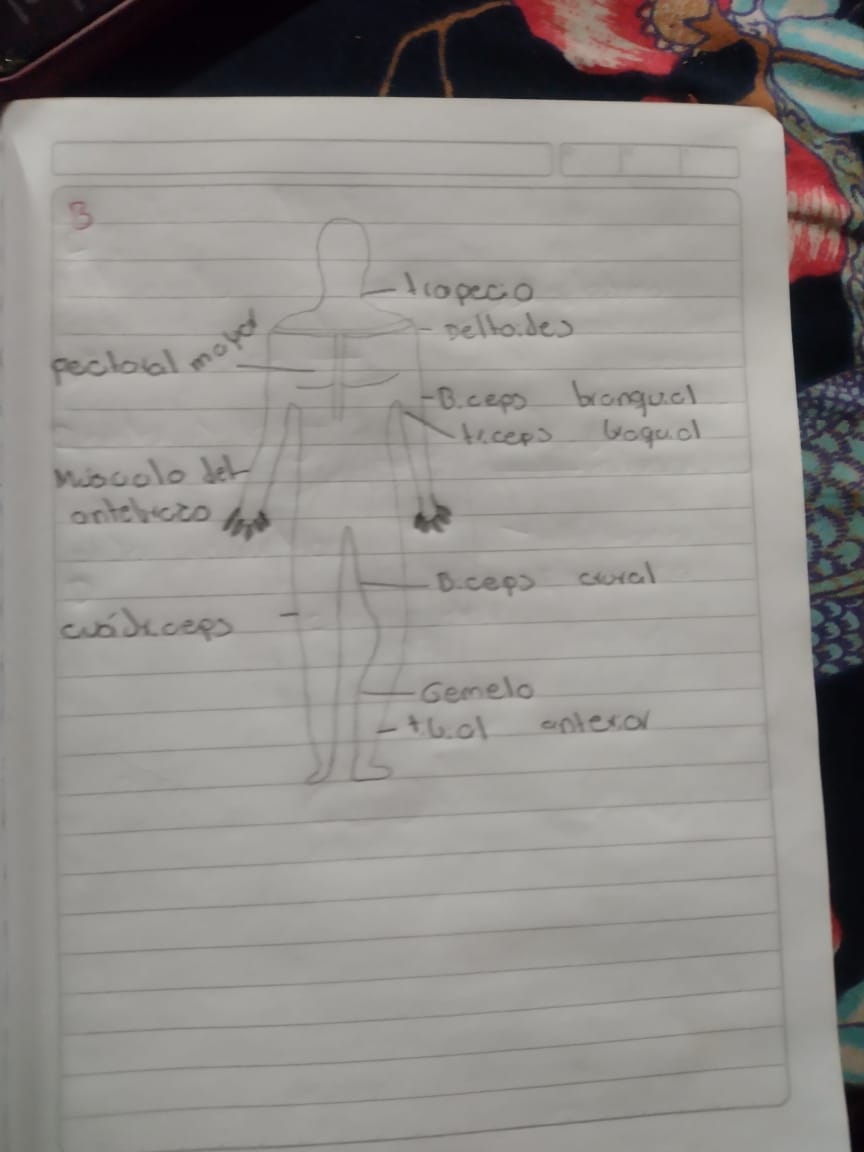 3
trapecio
Deltoides
pectoral mayor
Biceps branquial
triceps braquial
Musculo del
antebrazo
Biceps crural
cuádriceps
Gemelo
tibial anterior